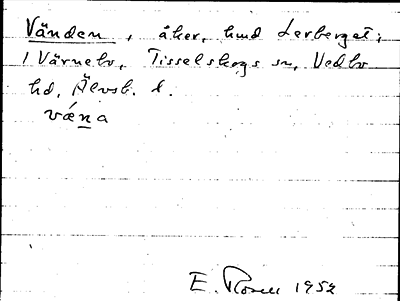 Vänden, åker, hmd Lerberget,
1 Värnebo, Tisselskogs sn, Vedbo
hd, Älvsb. l.
væna
E. Rosell 1952